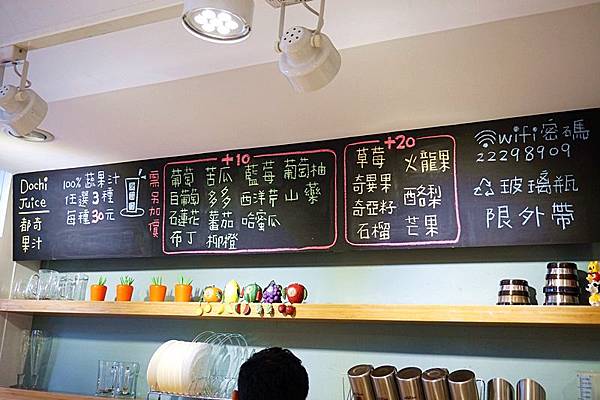 Dochi
Juice
都奇
果汁
100% 蔬果汁
任選3種
每種30元
需另加價
+10
葡萄 苦瓜 藍莓 葡萄柚
白葡萄 多多 西洋芹 山藥
石蓮花 蕃茄 哈蜜瓜
布丁 柳橙
+20
草莓 火龍果
奇異果
酪梨
奇亞籽
石榴 芒果
wifi密碼
22298909
玻璃瓶
限外帶